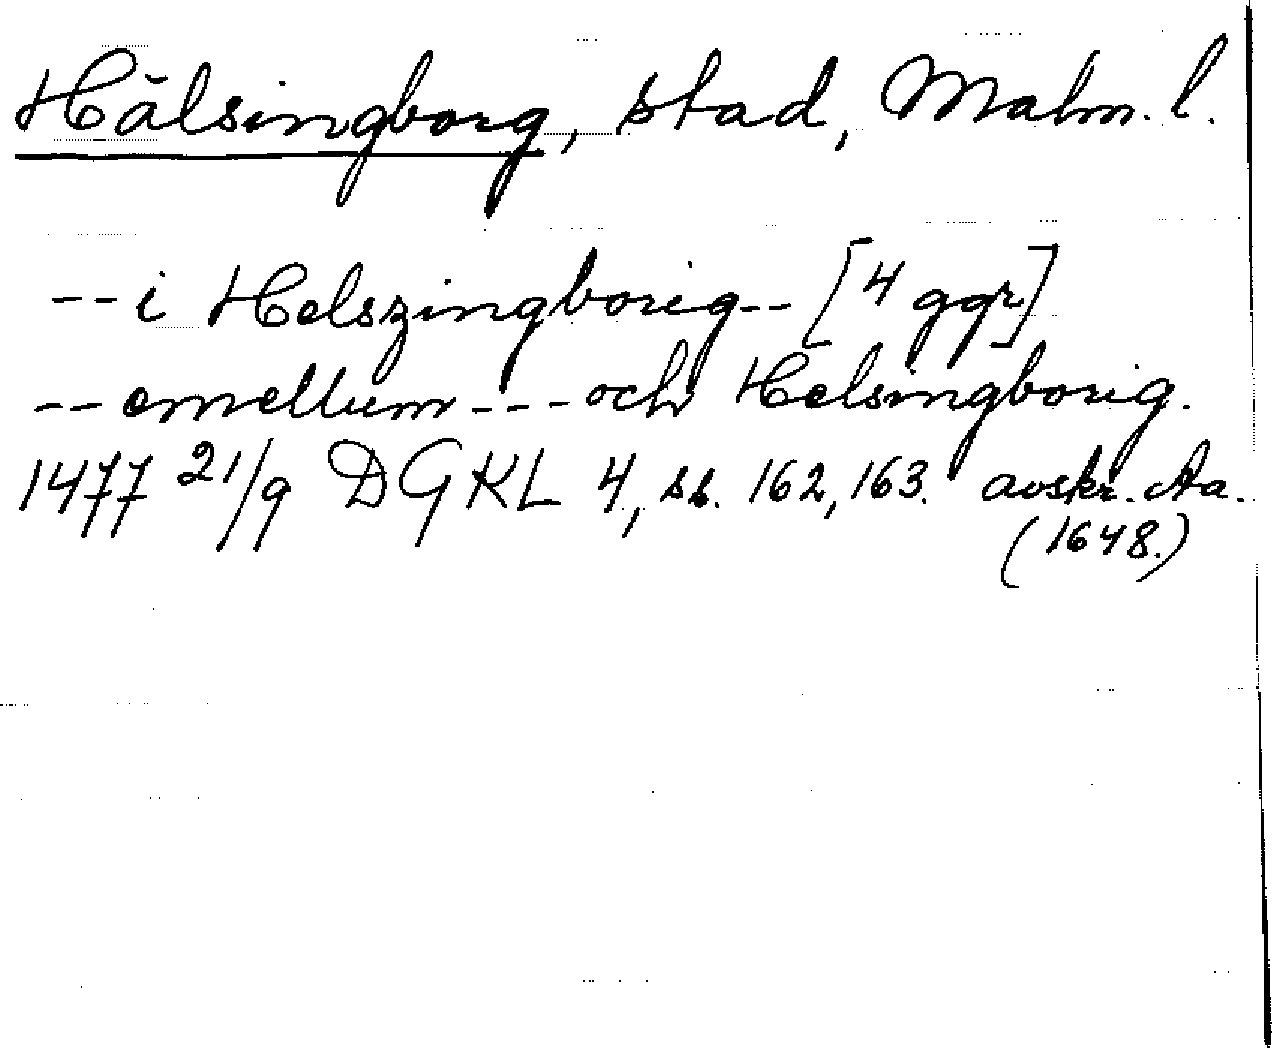 Hälsingborg, stad, Malm. l.
-- i Helszingborig -- [4 ggr]
-- emellum --- och Helsingborig.
1477 21/9 DGKL 4, ss. 162, 163. avskr. Aa.
(1648.)